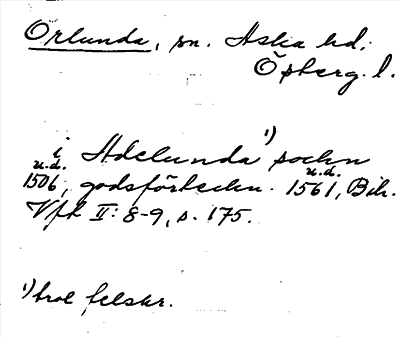 Örlunda, sn. Aska hd.
Östberg. l.
i Adelunda ¹) sockn
u.d. u.d.
1506, godsförteckn. 1561, Bih.
Vfk II: 8-9, s. 175.
¹) trol felskr.